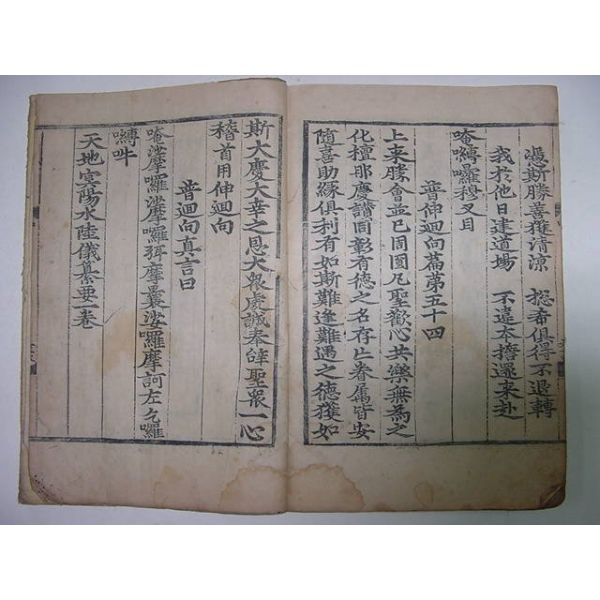 憑斯勝善獲清涼 摠希俱得不退轉
我於他日建道場 不違本誓還来赴
唵 囉穆叉目
普伸迴向篇第五十四
上来勝會並已周圎凡聖歡心共樂無為之
化檀那慶讚同彰有德之名存亡眷屬皆安
随喜助縁俱利有如斯難逢難遇之德獲如
斯大慶大幸之恩大衆虔誠奉辝聖衆一心
稽首用伸迴向
普迴向真言曰
唵娑摩囉娑摩囉弭摩曩娑囉摩訶左乞囉
嚩吽
天地冥陽水陸儀纂要一卷